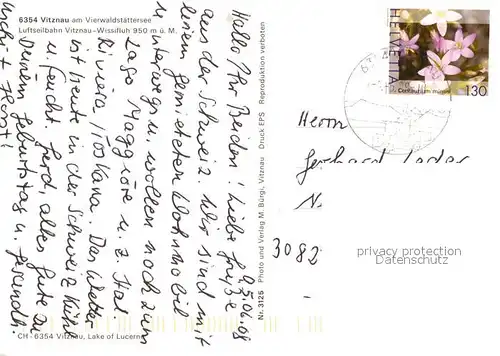 6354 Vitznau am Vierwaldstättersee
Luftseilbahn Vitznau-Wissifluh 950 m ü. M.
9.5.06.08
Hallo Ihr Beiden! Liebe Grüße
aus der Schweiz. Wir sind mit
einem gemieteten Wohnmobil
unterwegs u. wollen noch zum
Lago Maggiore u. z. Ital.
Riviera / Toskana. Das Wetter
ist heute in der Schweiz kühl
u. feucht. Gerd, alles Gute zu
Deinem Geburtstag u. Gesundh.
Uschi + Horst!
CH - 6354 Vitznau, Lake of Lucerne
Nr. 3125 Photo und Verlag M. Bürgi, Vitznau Druck EPS Reproduktion verboten
HELVETIA
Centaurium minus
130
Herrn
Gerhard
N.
3082
privacy protection
Datenschutz